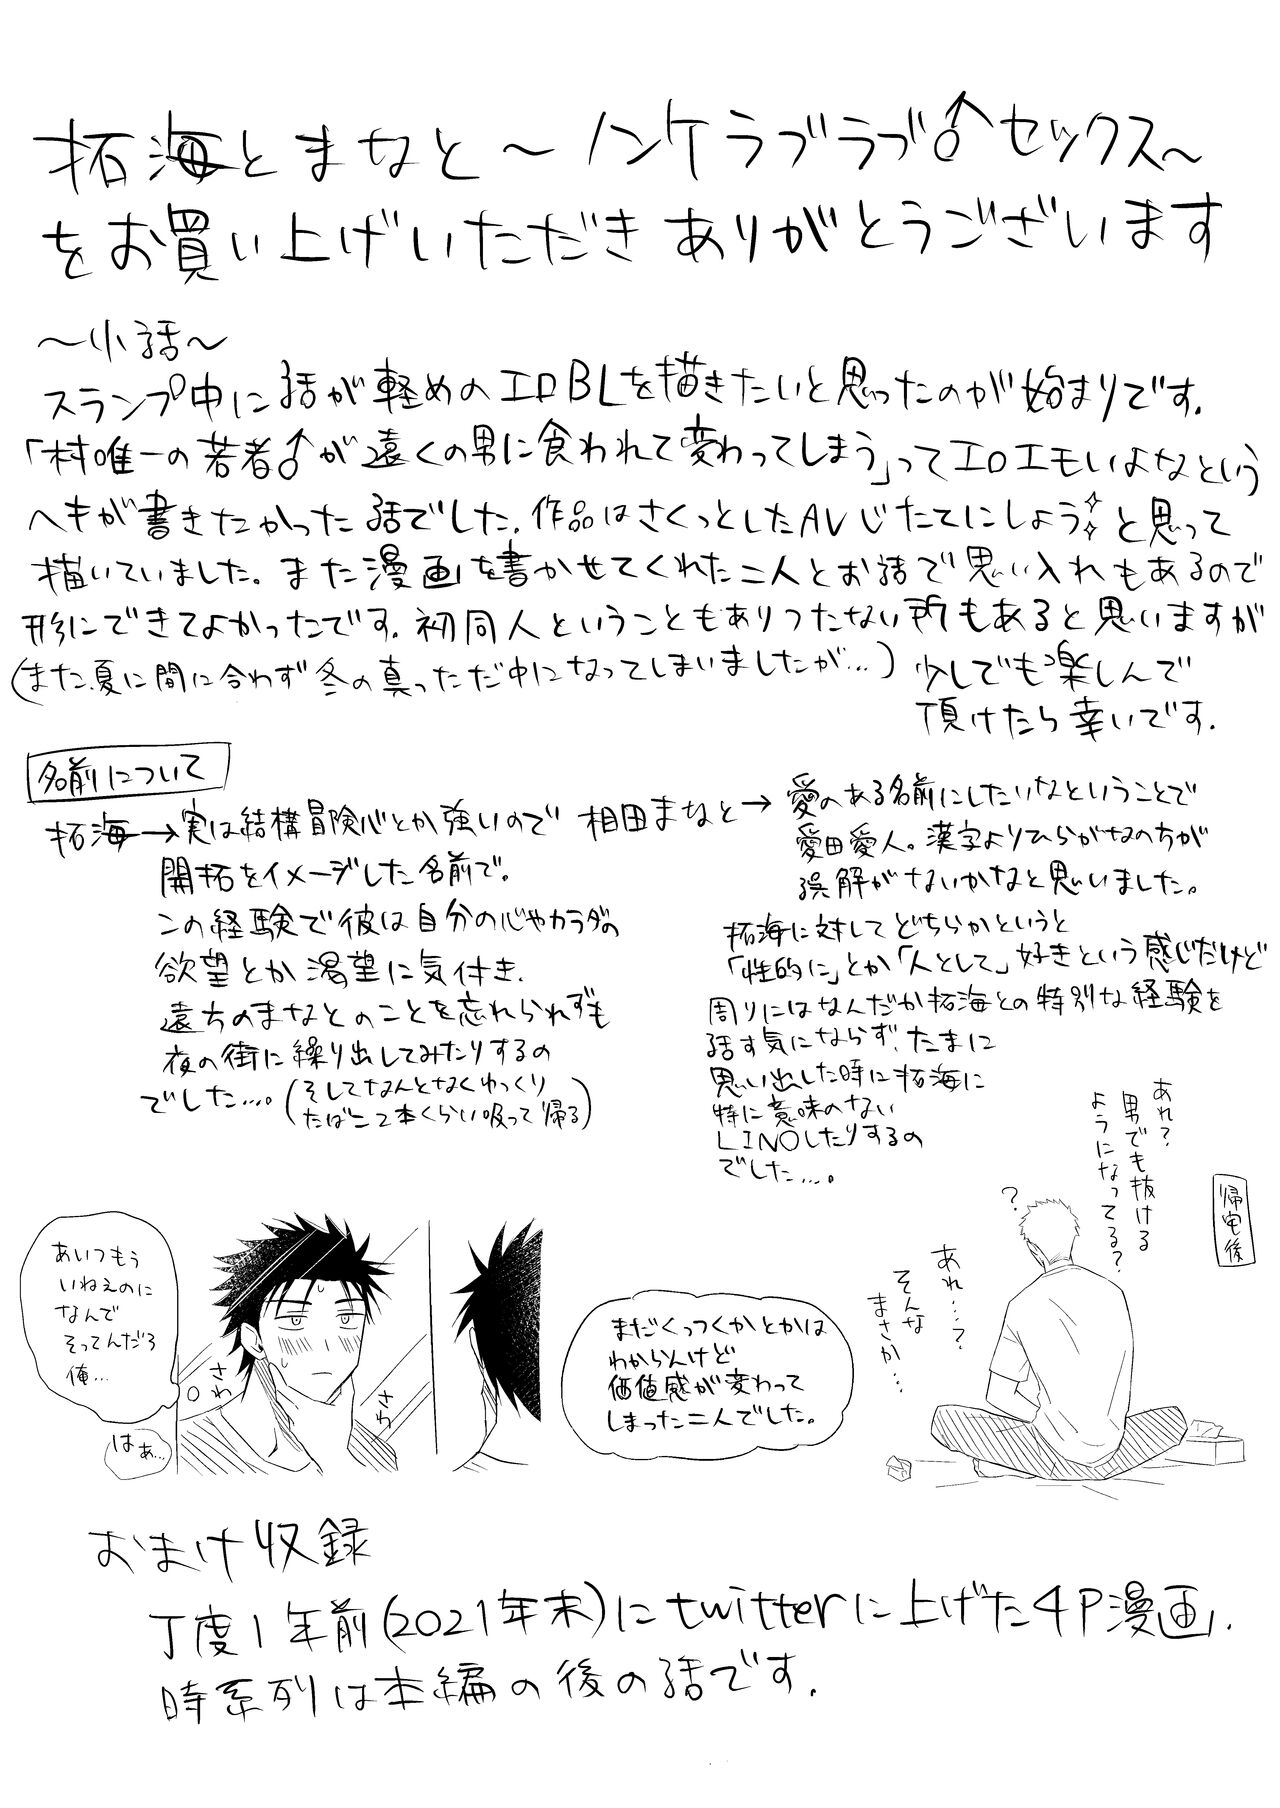 拓海とまなと〜ノンケラブラブ♂セックス〜
をお買い上げいただきありがとうございます
〜小話〜
スランプ中に話が軽めのエロBLを描きたいと思ったのが始まりです.
「村唯一の若者♂が遠くの男に食われて変わってしまう」ってエロエモいよなという
ヘキが書きたかった話でした.作品はさくっとしたAVじたてにしよう✧と思って
描いていました。また漫画を書かせてくれた二人とお話で思い入れもあるので
形にできてよかったです.初同人ということもありつたない所もあると思いますが
(また夏に間に合わず冬の真っただ中になってしまいましたが…)少しでも楽しんで
頂けたら幸いです.
名前について
拓海→実は結構冒険心とか強いので
開拓をイメージした名前で。
この経験で彼は自分の心やカラダの
欲望とか渇望に気付き.
遠方のまなとのことを忘れられずも
夜の街に繰り出してみたりするの
でした….。(そしてなんとなくゆっくり
たばこ2本くらい吸って帰る)
相田まなと→愛のある名前にしたいなということで
愛田愛人。漢字よりひらがなのちが
誤解がないかなと思いました。
拓海に対してどちらかというと
「性的に」とか「人として」好きという感じだけど
周りにはなんだか拓海との特別な経験を
話す気にならず.たまに
思い出した時に拓海に
特に意味のない
LINOしたりするの
でした….。
帰宅後
あれ?
男でも抜ける
ようになってる?
?
あれ…?
そんな
まさか…
あいつもう
いねぇのに
なんで
そってんだろ
俺…
はぁ…
さわ
さわ
まだくっつくかとかは
わからんけど
価値感が変わって
しまった二人でした。
おまけ収録
丁度1年前(2021年末)にtwitterに上げた4P漫画.
時系列は本編の後の話です.